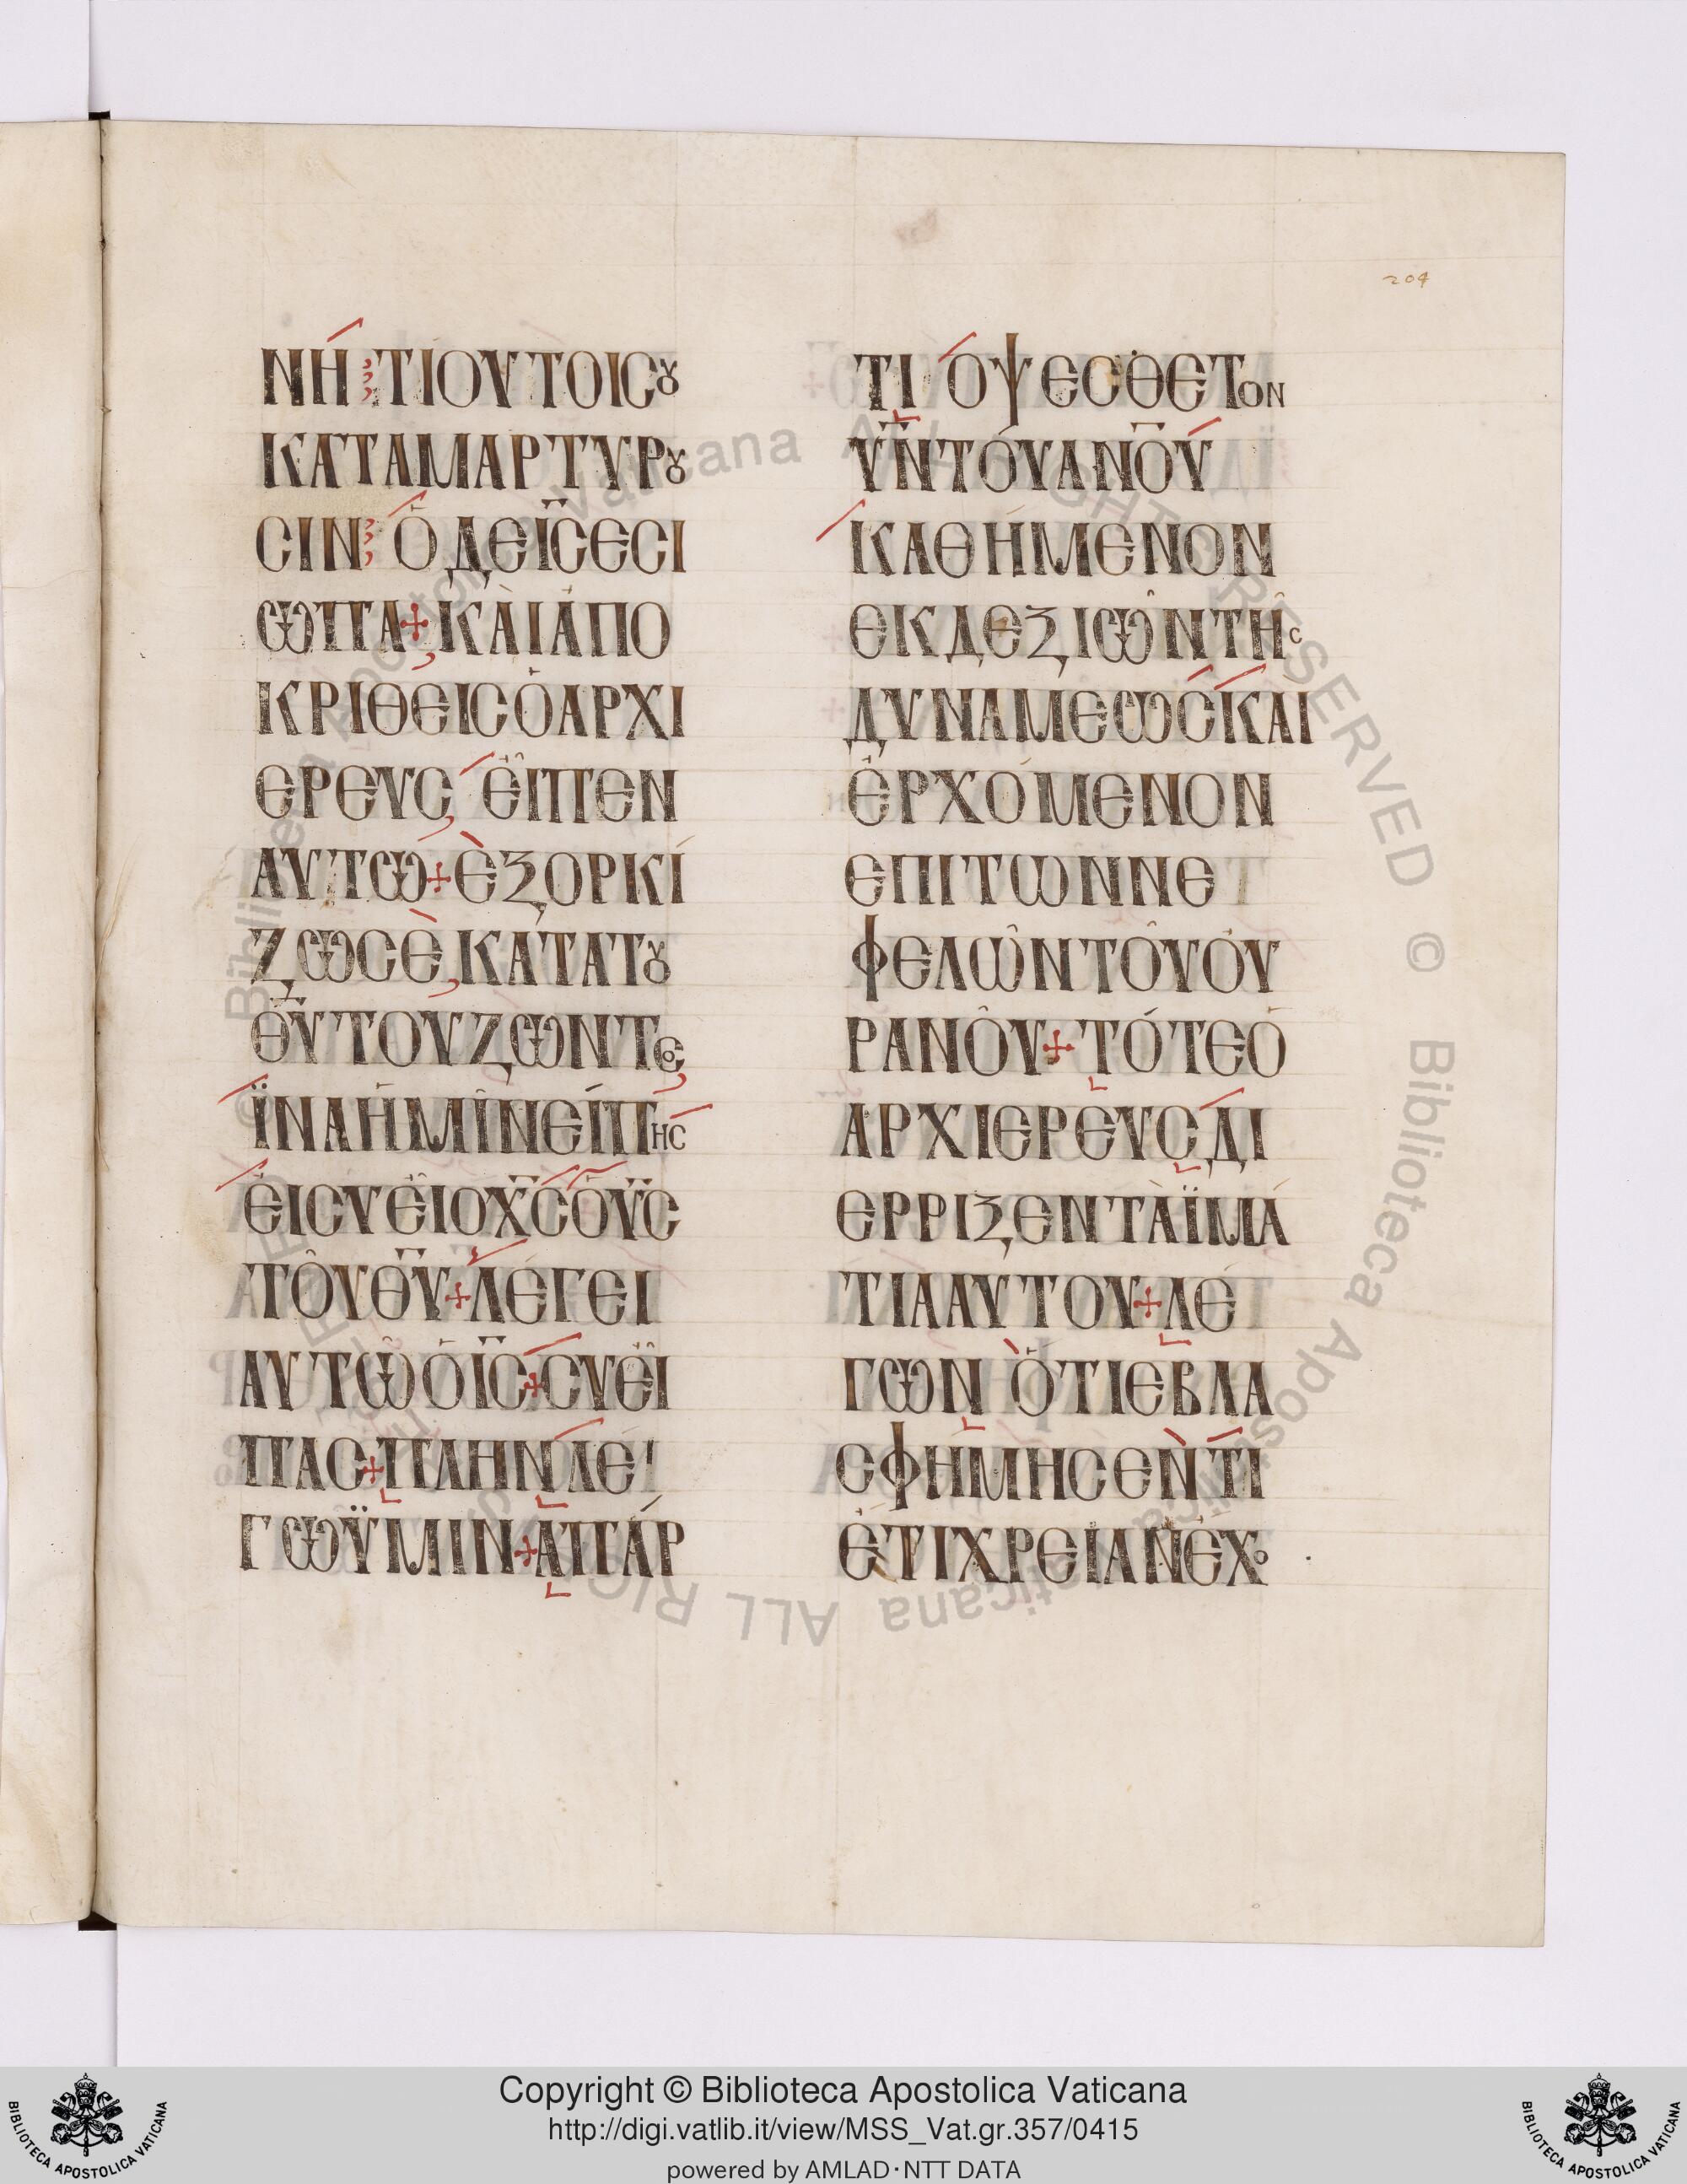 204
ΝΗ ΤΙΟΥΤΟΙCȢ
ΚΑΤΑΜΑΡΤΥΡȢ
CΙΝ ὉΔΕΙ̅C̅ΕCΙ
ΩΠΑ+ΚΑΙΑΠΟ
ΚΡΙΘΕΙCΟΑΡΧΙ
ΕΡΕΥC, ΕΙΠΕΝ
ΑΥΤΩ+ΕΞΟΡΚΙ
ΖΩCΕ,ΚΑΤΑΤȢ
Θ̅Υ̅ΤΟΥΖΩΝΤΟC,
ΪΝΑΗΜΙΝΕΙΠΗC
ΕΙCΥΕΙΟΧ̅C̅ΟΥ̅C̅
ΤΟΥΘ̅Υ̅+ΛΕΓΕΙ
ΑΥΤΩΟΙ̅C̅+CΥΕΙ
ΠΑC+ΠΛΗΝΛΕ
ΓΩΫΜΙΝ+ΑΠΑΡ
ΤΙ ΟΨΕCΘΕΤΟΝ
Υ̅Ν̅ΤΟΥΑΝ̅Ο̅Υ̅
ΚΑΘΗΜΕΝΟΝ
ΕΚΔΕΞΙΩΝΤΗC
ΔΥΝΑΜΕΩCΚΑΙ
ΕΡΧΟΜΕΝΟΝ
ΕΠΙΤΩΝΝΕ
ΦΕΛΩΝΤΟΥΟΥ
ΡΑΝΟΥ+ΤΟΤΕΟ
ΑΡΧΙΕΡΕΥCΔΙ
ΕΡΡΙΞΕΝΤΑΪΜΑ
ΤΙΑΑΥΤΟΥ+ΛΕ
ΓΩΝ ὉΤΙΕΒΛΑ
CΦΗΜΗCΕΝΤΙ
ΕΤΙΧΡΕΙΑΝΕΧΟ
Copyright © Biblioteca Apostolica Vaticana
http://digi.vatlib.it/view/MSS_Vat.gr.357/0415
powered by AMLAD·NTT DATA
BIBLIOTECA APOSTOLICA VATICANA
BIBLIOTECA APOSTOLICA VATICANA